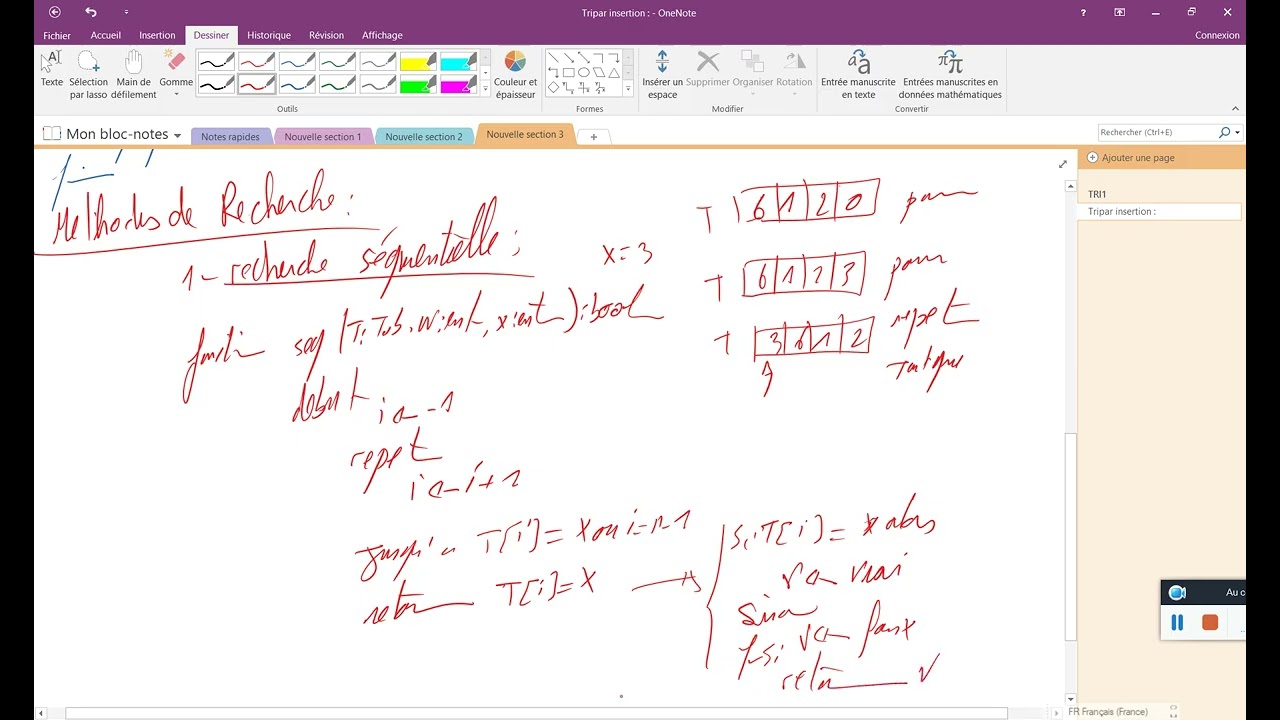 Tripar insertion : - OneNote
Fichier Accueil Insertion Dessiner Historique Révision Affichage Connexion
Texte Sélection par lasso Main de défilement Gomme Couleur et épaisseur Insérer un espace Supprimer Organiser Rotation Entrée manuscrite en texte Entrées manuscrites en données mathématiques
Outils Formes Modifier Convertir
Mon bloc-notes Notes rapides Nouvelle section 1 Nouvelle section 2 Nouvelle section 3 + Rechercher (Ctrl+E)
Ajouter une page
TRI1
Tripar insertion :
Methodes de Recherche :
1- recherche séquentielle :
x = 3
T 6 1 2 0 pour
T 6 1 2 3 pour
T 3 6 1 2 repet
Tantque
fonction seq (T: Tab, N: ent, x: ent): bool
debut i ← -1
repet
i ← i + 1
jusqu'a T[i] = X ou i = n-1
retour T[i] = X →
Si T[i] = x alors
r ← vrai
Sinon
r ← faux
f-si
retour r
Au c
FR Français (France)